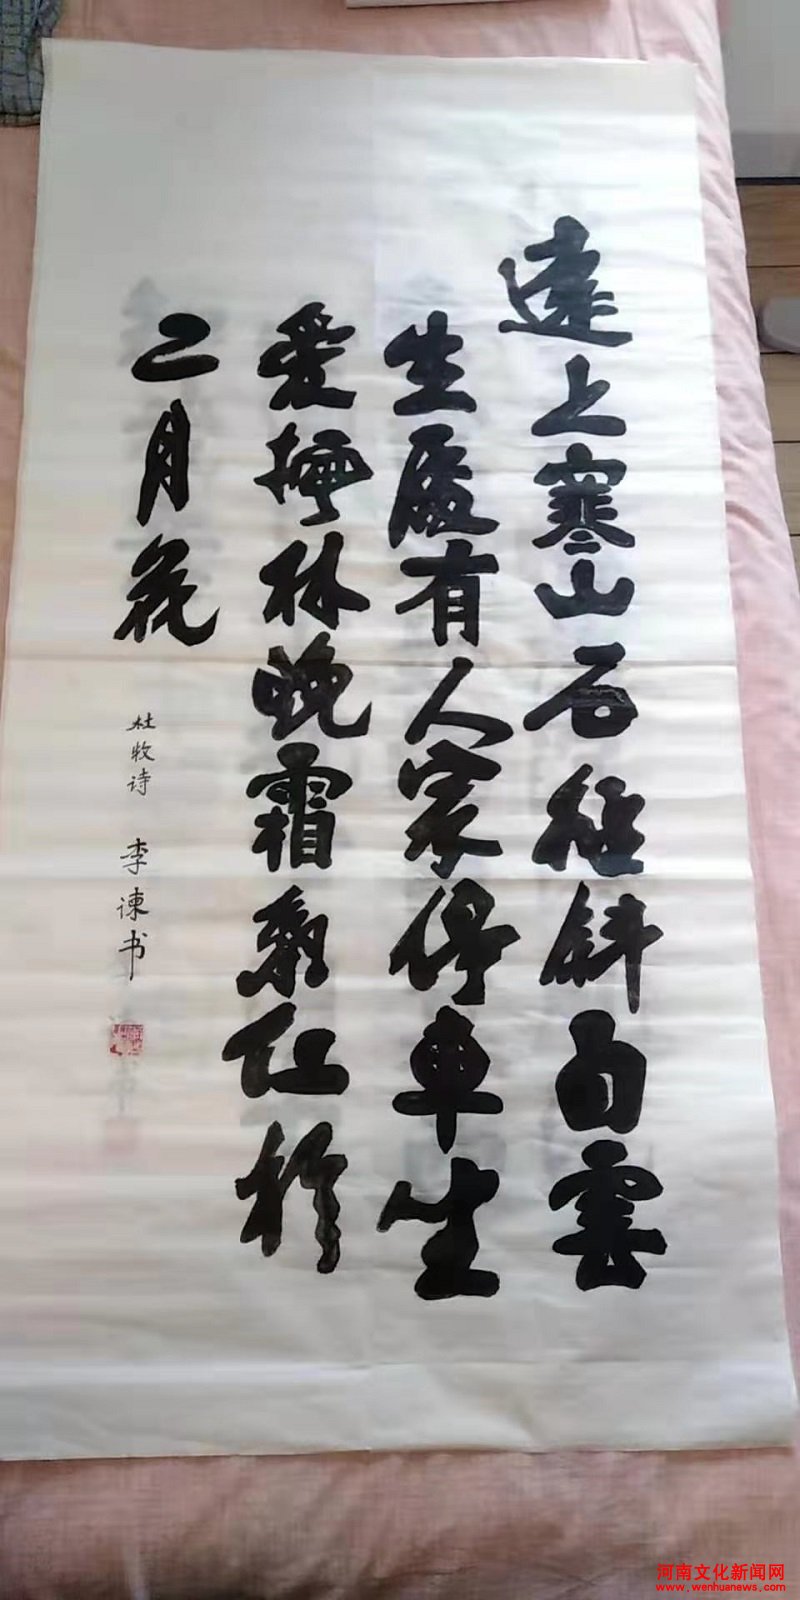 遠上寒山石徑斜白雲
生處有人家停車坐
爱楓林晚霜葉红於
二月花
杜牧诗 李谏书
河南文化新闻网
www.wenhuanews.com